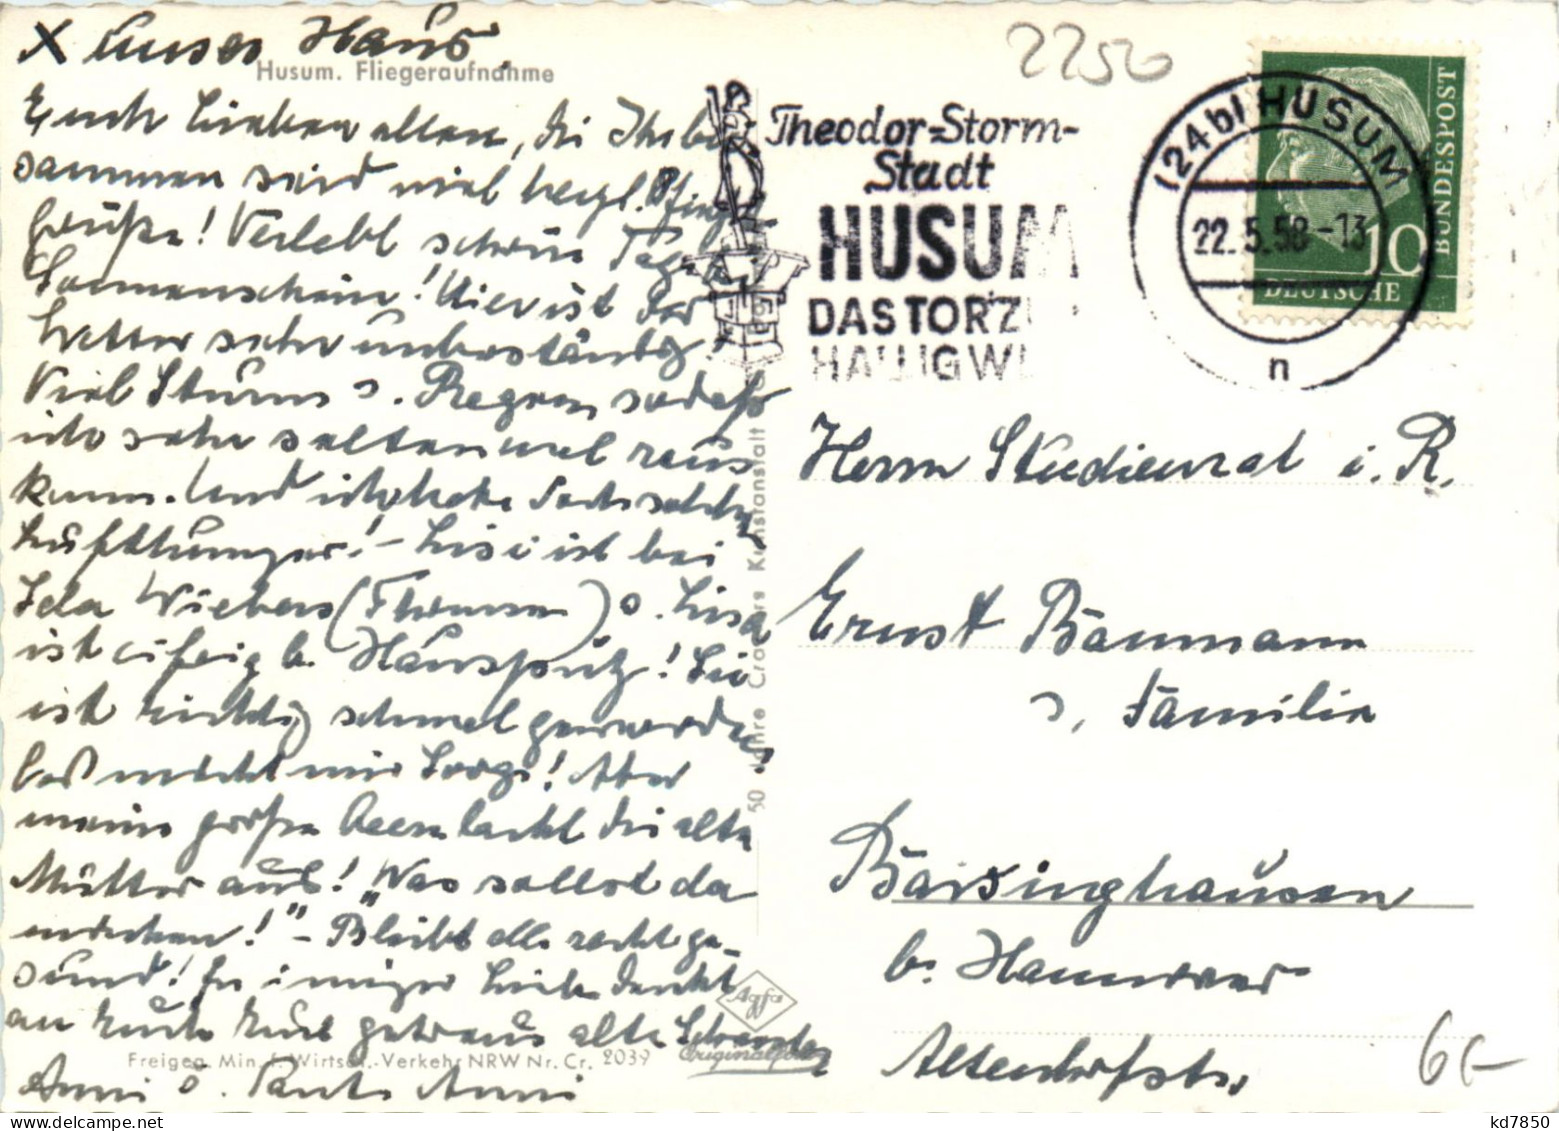 X Unser Haus
Husum. Fliegeraufnahme
Euch Lieben allen, die Ihr bei
sammen seid viel herzl. Pfingst
grüße! Verlebt schöne Tage
Sonnenschein! Hier ist das
Wetter sehr unbeständig
Viel Sturm u. Regen, sodaß
ich sehr selten mal raus
kam. Und ich habe doch solchen
Lufthunger! – Lisa ist bei
Ida Wiebers (Thomsen) u. Lisa
ist eifrig b. Hausputz! Sie
ist richtig schmal geworden
das macht mir Sorge! Aber
meine große Aeen lacht die alte
Mutter aus! „Was sollst da
machen!" – Bleibt alle recht ge-
sund! In inniger Liebe denkt
an Euch Eure getreue alte Schwester
Anni u. Tante Anni
Freigeg. Min. f. Wirtsch.-Verkehr NRW Nr. Cr. 2039
50 Jahre Cramers Kunstanstalt
Agfa
Originalfoto
2250
Theodor-Storm-
Stadt
HUSUM
DAS TOR ZU
HALLIGWE
(24b) HUSUM
22.5.58-13
n
10
DEUTSCHE
BUNDESPOST
Herrn Studienrat i. R.
Ernst Baumann
u. Familie
Barsinghausen
b. Hannover
Altenhofstr.
6.-
kd7850